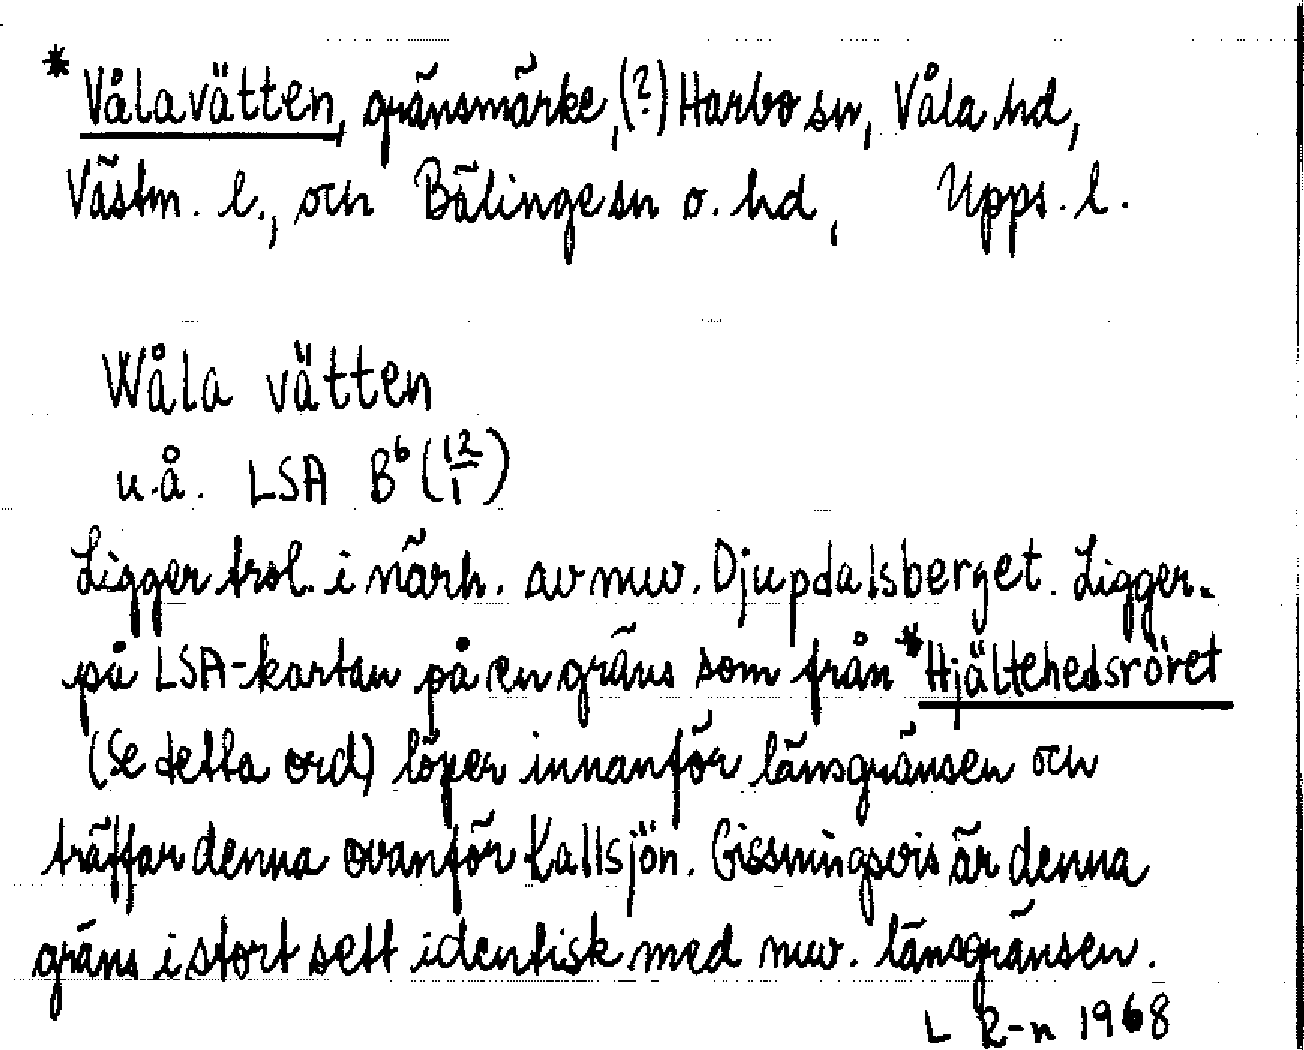 *Vålavätten, gränsmärke, (?) Harbo sn, Våla hd,
Västm. l., och Bälinge sn o. hd, Upps. l.
Wåla vätten
u.å. LSA B⁶ (12/1)
Ligger trol. i närh. av nuv. Djupdalsberget. Ligger
på LSA-kartan på en gräns som från *Hjältehedsröret
(Se detta ord) löper innanför länsgränsen och
träffar denna ovanför Kallsjön. Gissningsvis är denna
gräns i stort sett identisk med nuv. länsgränsen.
L R-n 1968